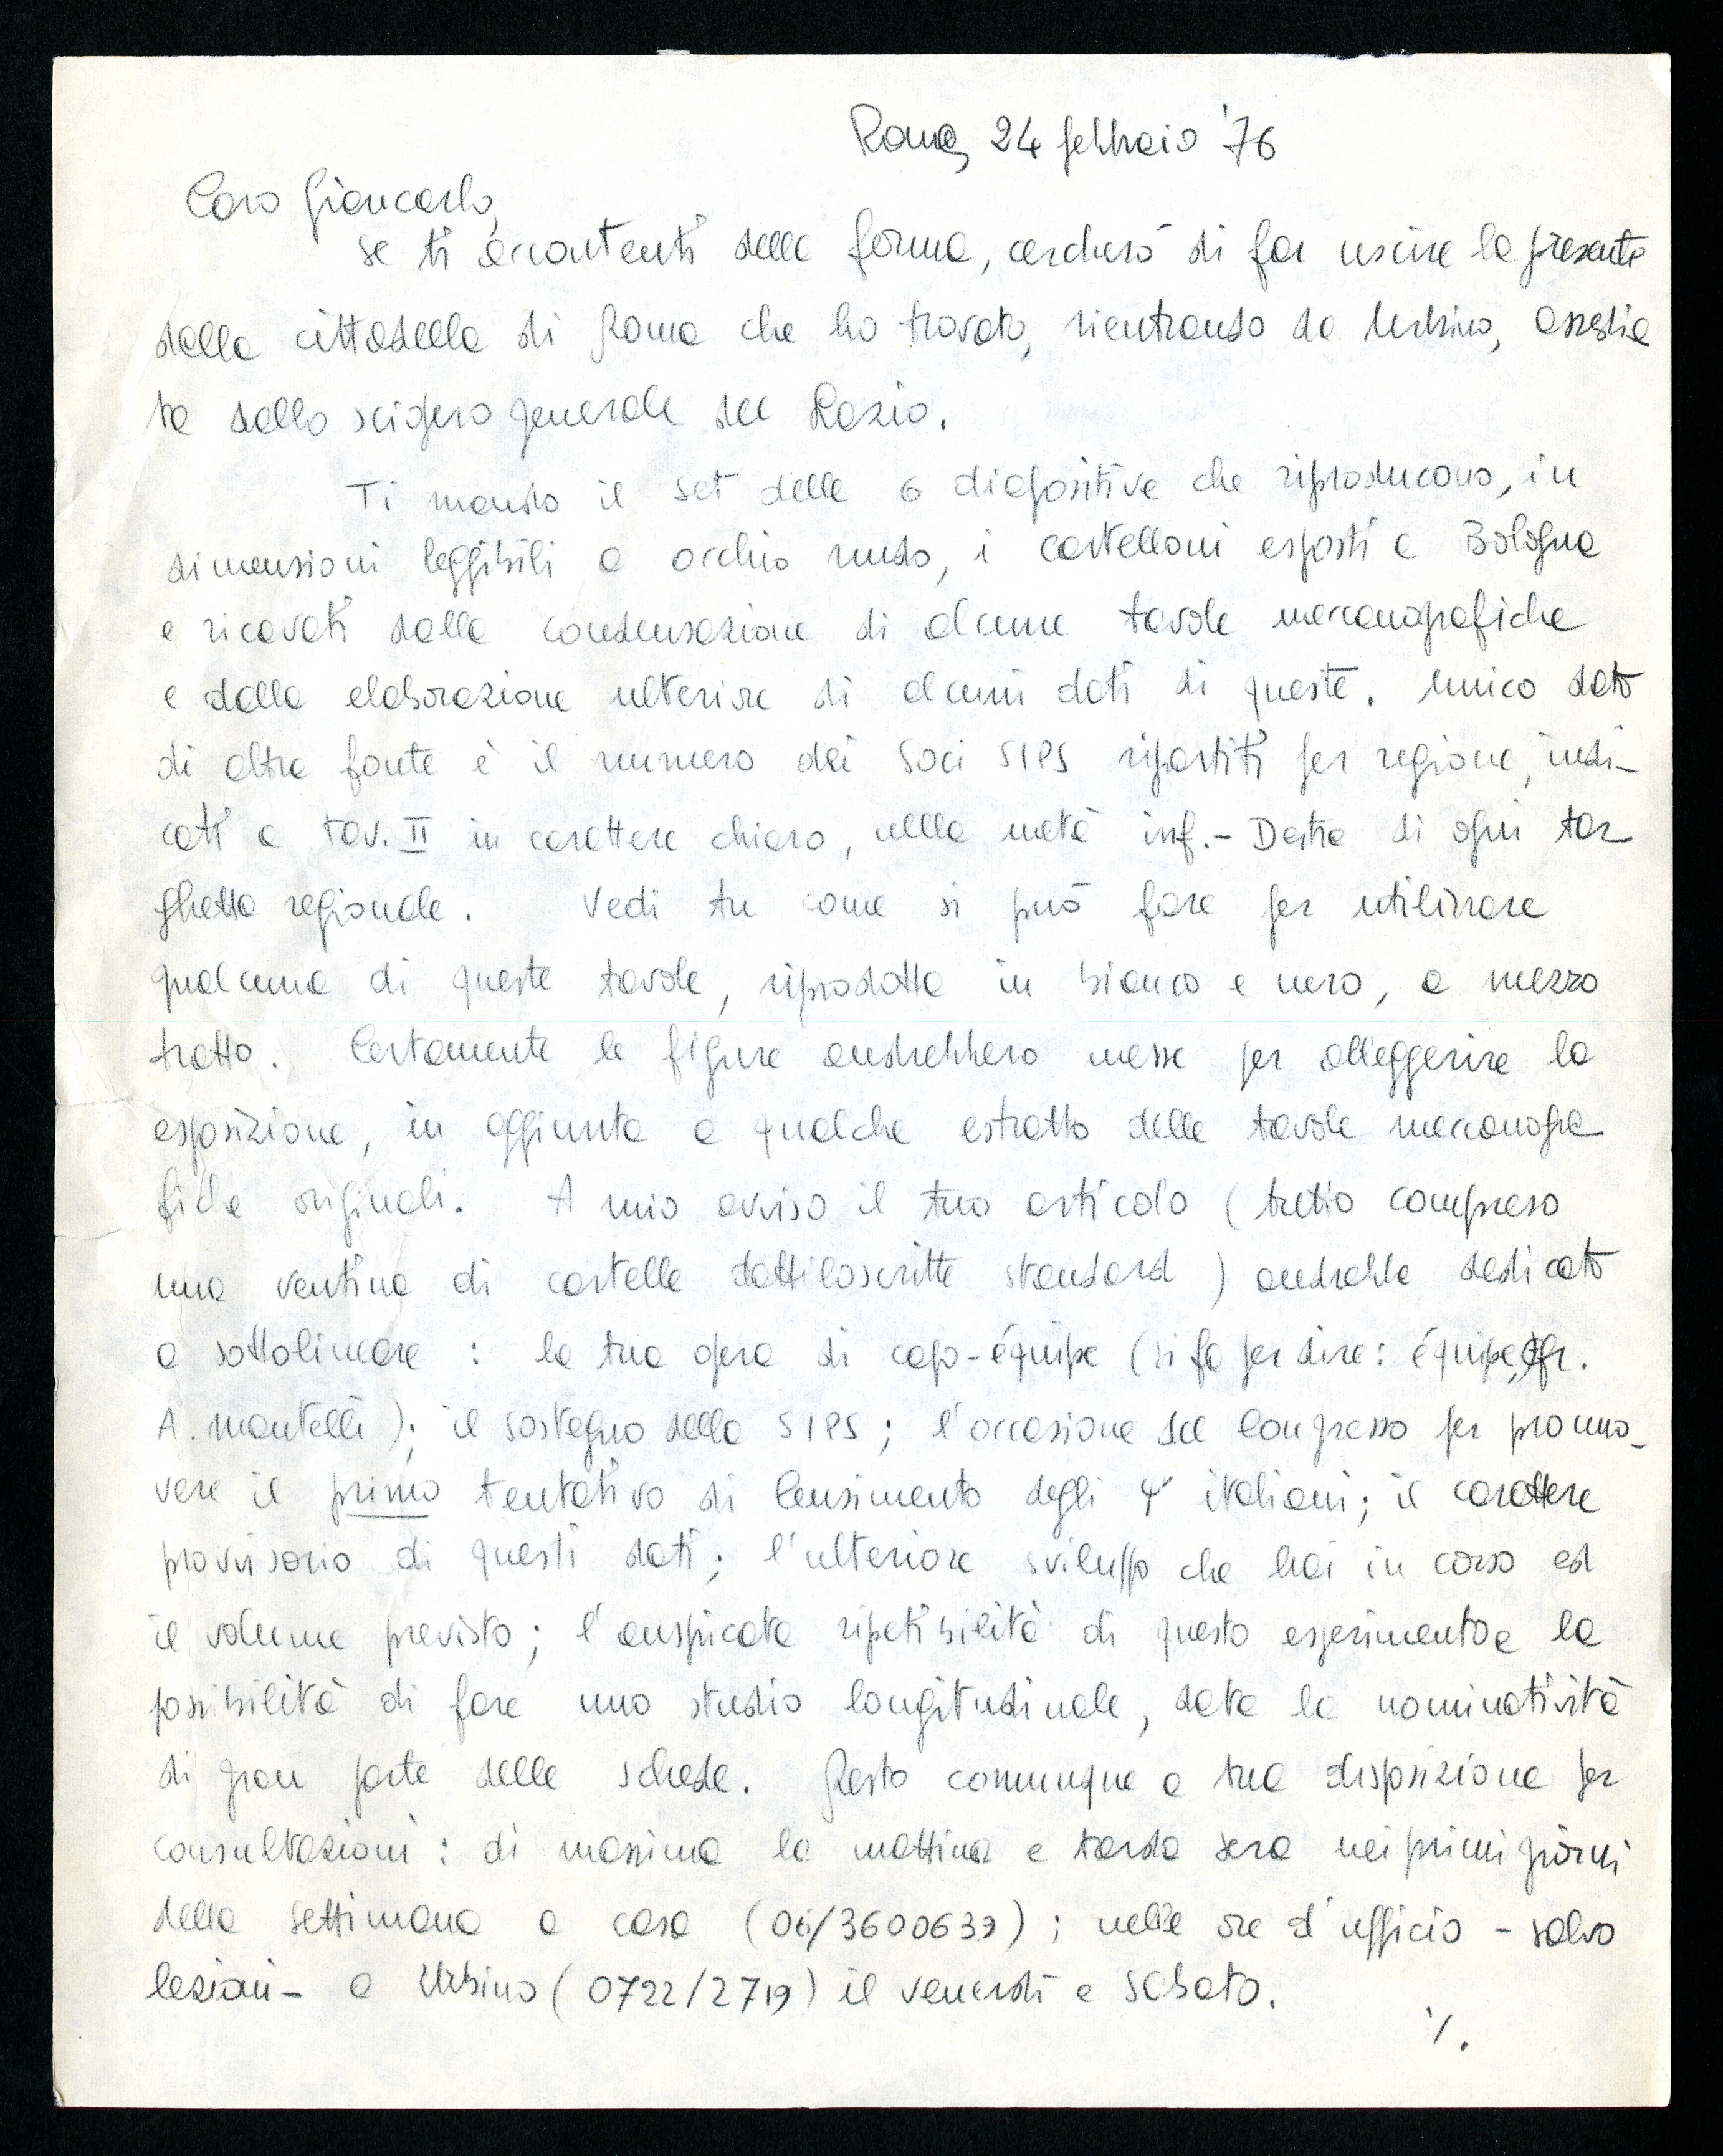 Roma, 24 febbraio '76
Caro Giancarlo,
se ti accontenti della forma, cercherò di far uscire la presente
dalla cittadella di Roma che ho trovato, rientrando da Urbino, assedia
ta dallo sciopero generale del Lazio.
Ti mando il set delle 6 diapositive che riproducono, in
dimensioni leggibili a occhio nudo, i cartelloni esposti a Bologna
e ricavati dalla condensazione di alcune tavole meccanografiche
e dalla elaborazione ulteriore di alcuni dati di queste. Unico dato
di altra fonte è il numero dei Soci SIPS ripartiti per regione, indi-
cati a tav. II in carattere chiaro, nella metà inf.- Destra di ogni tar
ghetta regionale. Vedi tu come si può fare per utilizzare
qualcuna di queste tavole, riprodotta in bianco e nero, a mezzo
tratto. Certamente le figure andrebbero messe per alleggerire la
esposizione, in aggiunta a qualche estratto delle tavole meccanogra
fiche originali. A mio avviso il tuo articolo (tutto compreso
una ventina di cartelle dattiloscritte standard) andrebbe dedicato
a sottolineare : la tua opera di capo-équipe (si fa per dire: équipe, fr.
A. Mantelli); il sostegno della SIPS; l'occasione del Congresso per promuo-
vere il primo tentativo di Censimento degli Ψ italiani; il carattere
provvisorio di questi dati; l'ulteriore sviluppo che hai in corso ed
il volume previsto; l'auspicata ripetibilità di questo esperimento e la
possibilità di fare uno studio longitudinale, data la nominatività
di gran parte delle schede. Resto comunque a tua disposizione per
consultazioni : di massima la mattina e tarda sera nei primi giorni
della settimana a casa (06/3600639) ; nelle ore d'ufficio - salvo
lezioni - a Urbino (0722/2719) il venerdì e sabato.
./.